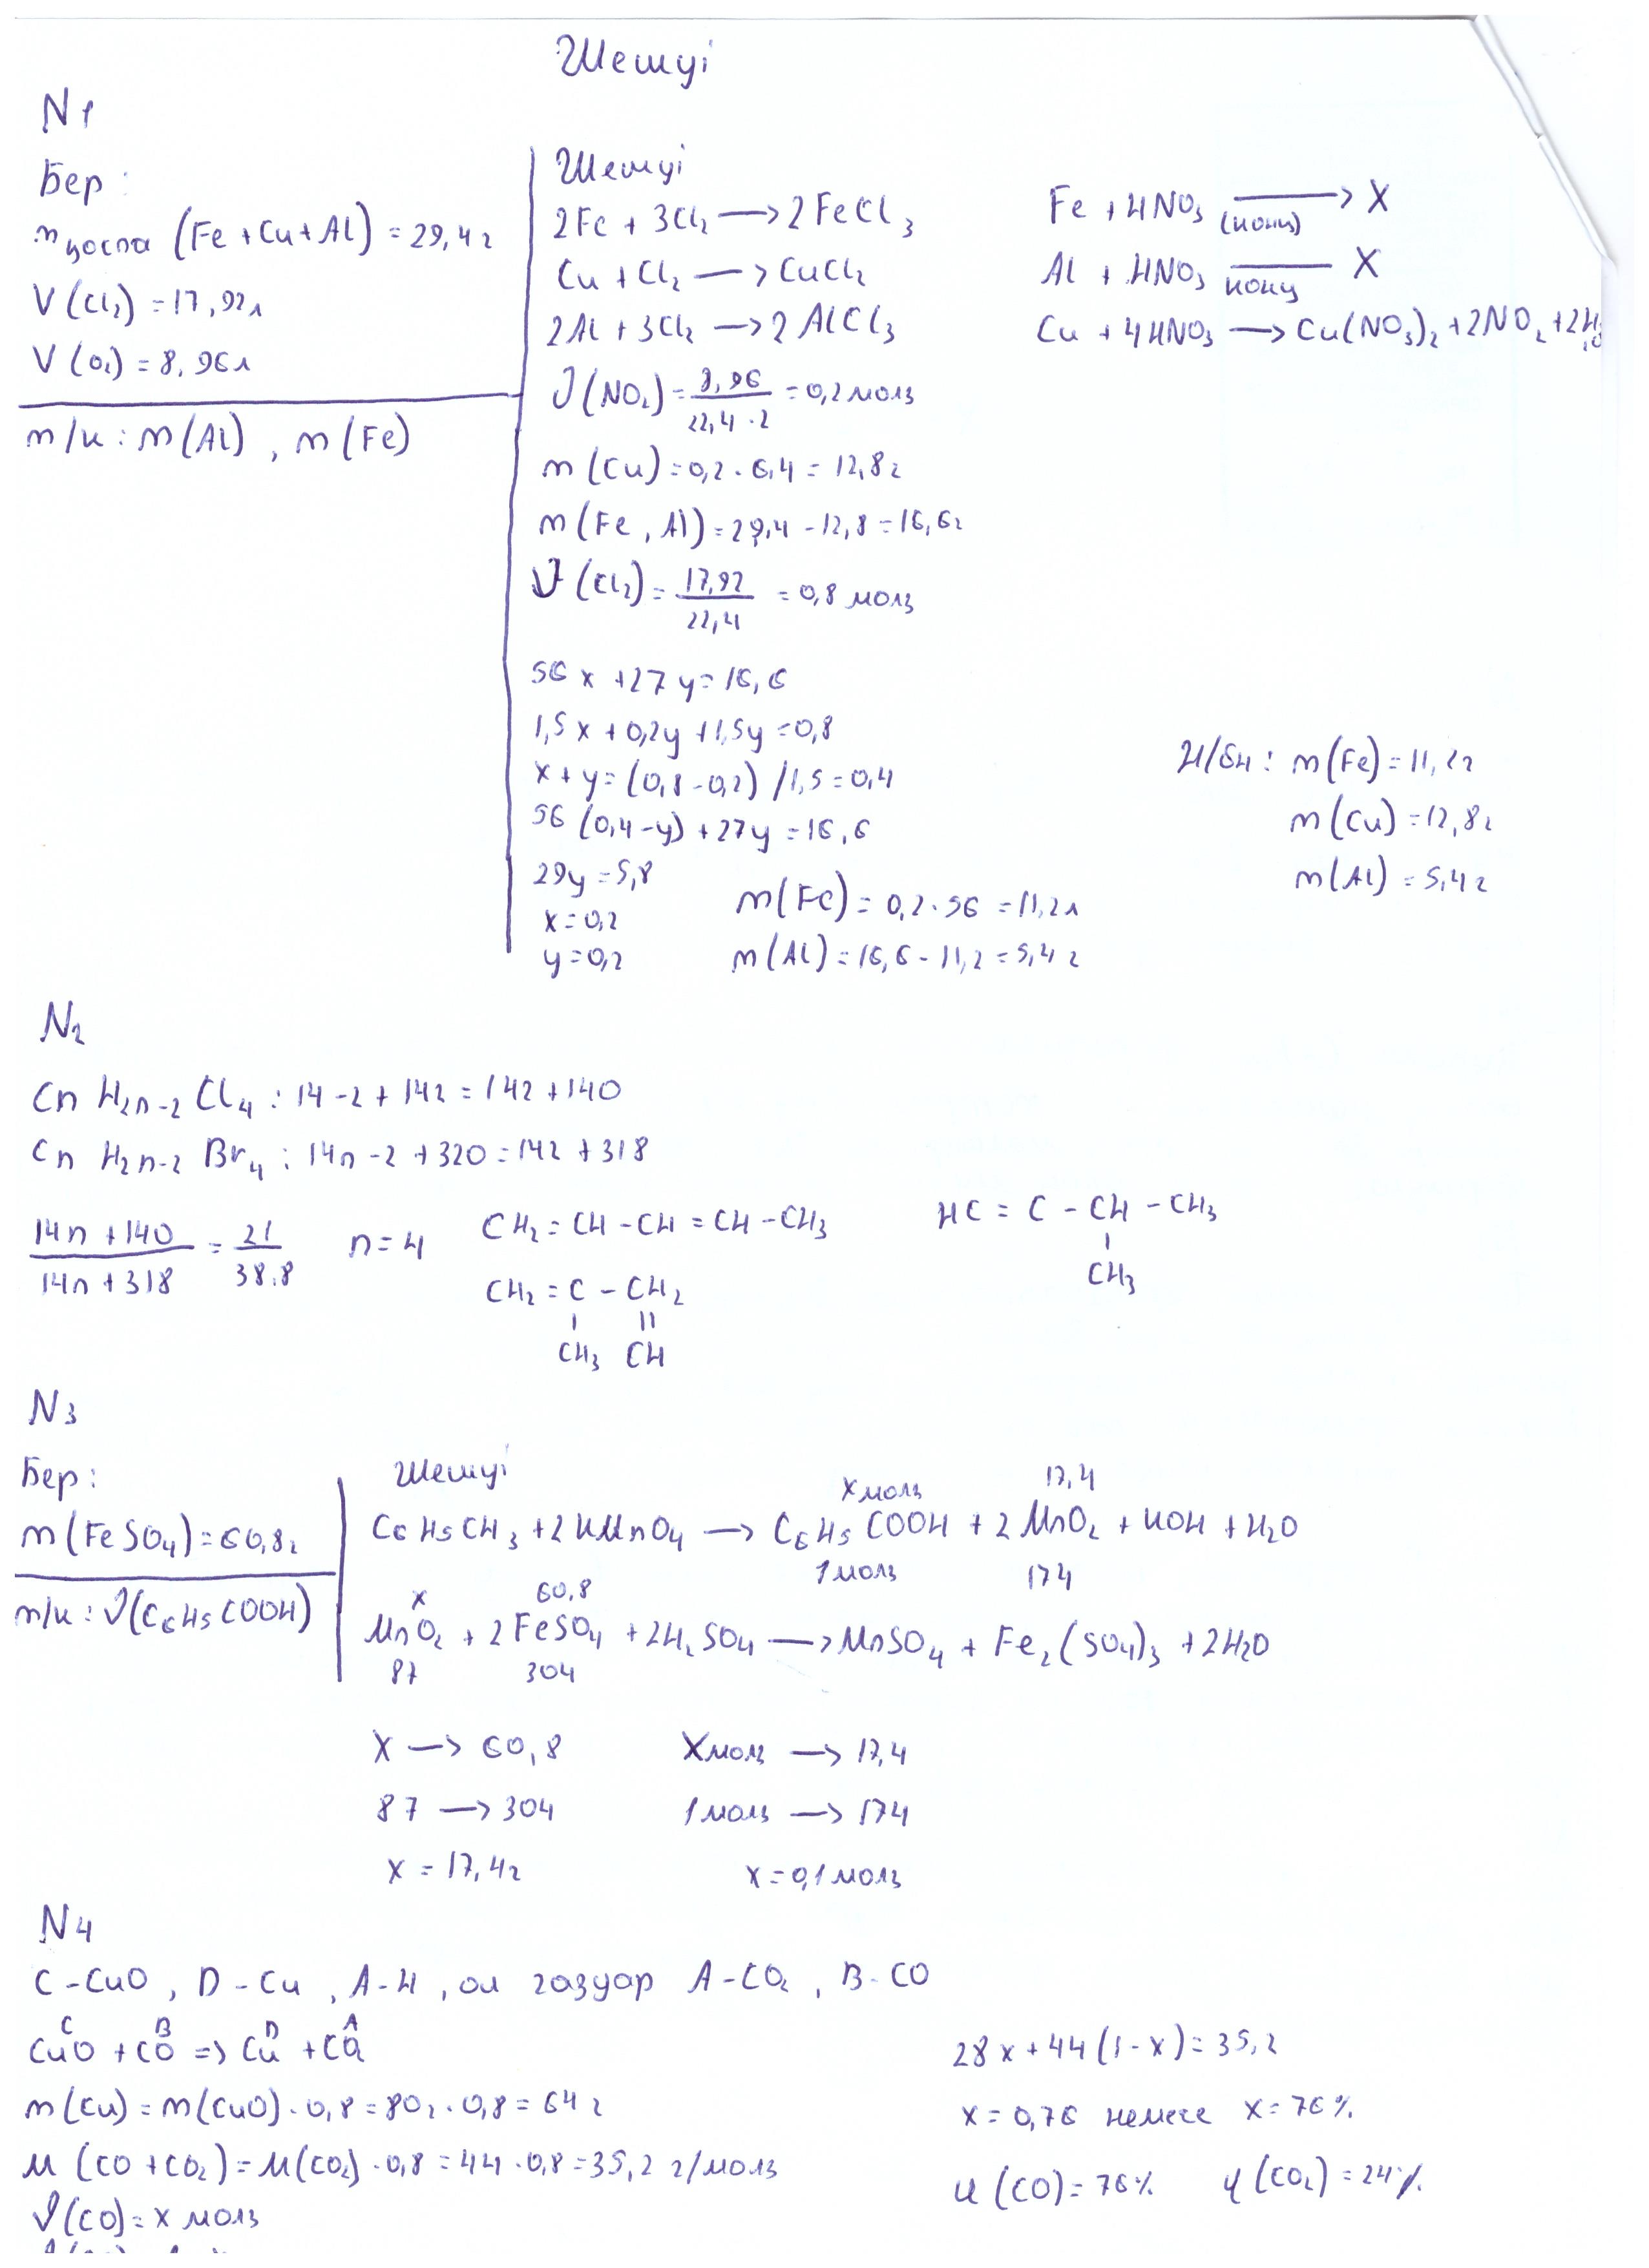 Шешуі
N1
Бер:
m қоспа (Fe + Cu + Al) = 29,4г
V (Cl₂) = 17,92л
V (O₂) = 8,96л
т/к : m(Al) , m(Fe)
Шешуі
2Fe + 3Cl₂ → 2FeCl₃
Cu + Cl₂ → CuCl₂
2Al + 3Cl₂ → 2AlCl₃
J(NO₂) = 8,96 / 22,4 · 2 = 0,2 моль
m (Cu) = 0,2 · 6,4 = 12,8г
m (Fe, Al) = 29,4 - 12,8 = 16,6г
J (Cl₂) = 17,92 / 22,4 = 0,8 моль
56x + 27y = 16,6
1,5x + 0,2y + 1,5y = 0,8
x + y = (0,8 - 0,2) / 1,5 = 0,4
56 (0,4 - y) + 27y = 16,6
29y = 5,8
x = 0,2
y = 0,2
m(Fe) = 0,2 · 56 = 11,2л
m(Al) = 16,6 - 11,2 = 5,4г
Fe + HNO₃ (конц) → X
Al + HNO₃ конц — X
Cu + 4HNO₃ → Cu(NO₃)₂ + 2NO₂ + 2H₂O
m(Fe) = 11,2г
m(Cu) = 12,8г
m(Al) = 5,4г
N2
Cn H2n-2 Cl₄ : 14 - 2 + 142 = 142 + 140
Cn H2n-2 Br₄ : 14n - 2 + 320 = 142 + 318
14n + 140 / 14n + 318 = 21 / 38.8 n = 4
CH₂ = CH - CH = CH - CH₃
CH₂ = C - CH₂
CH₃ CH
HC = C - CH - CH₃
CH₃
N3
Бер:
m(FeSO₄) = 60,8г
т/к : J(C₆H₅COOH)
Шешуі
x моль 17,4
C₆H₅CH₃ + 2KMnO₄ → C₆H₅COOH + 2MnO₂ + KOH + H₂O
1 моль 174
x 60,8
MnO₂ + 2FeSO₄ + 2H₂SO₄ → MnSO₄ + Fe₂(SO₄)₃ + 2H₂O
87 304
X → 60,8
87 → 304
x = 17,4г
X моль → 17,4
1 моль → 174
x = 0,1 моль
N4
C - CuO , D - Cu , A - H , ол газдар A - CO₂ , B - CO
C B D A
CuO + CO => Cu + CO₂
m(Cu) = m(CuO) · 0,8 = 80г · 0,8 = 64г
M (CO + CO₂) = M(CO₂) · 0,8 = 44 · 0,8 = 35,2 г/моль
J(CO) = x моль
28x + 44(1 - x) = 35,2
x = 0,76 немесе x = 76%
φ (CO) = 76% φ (CO₂) = 24%